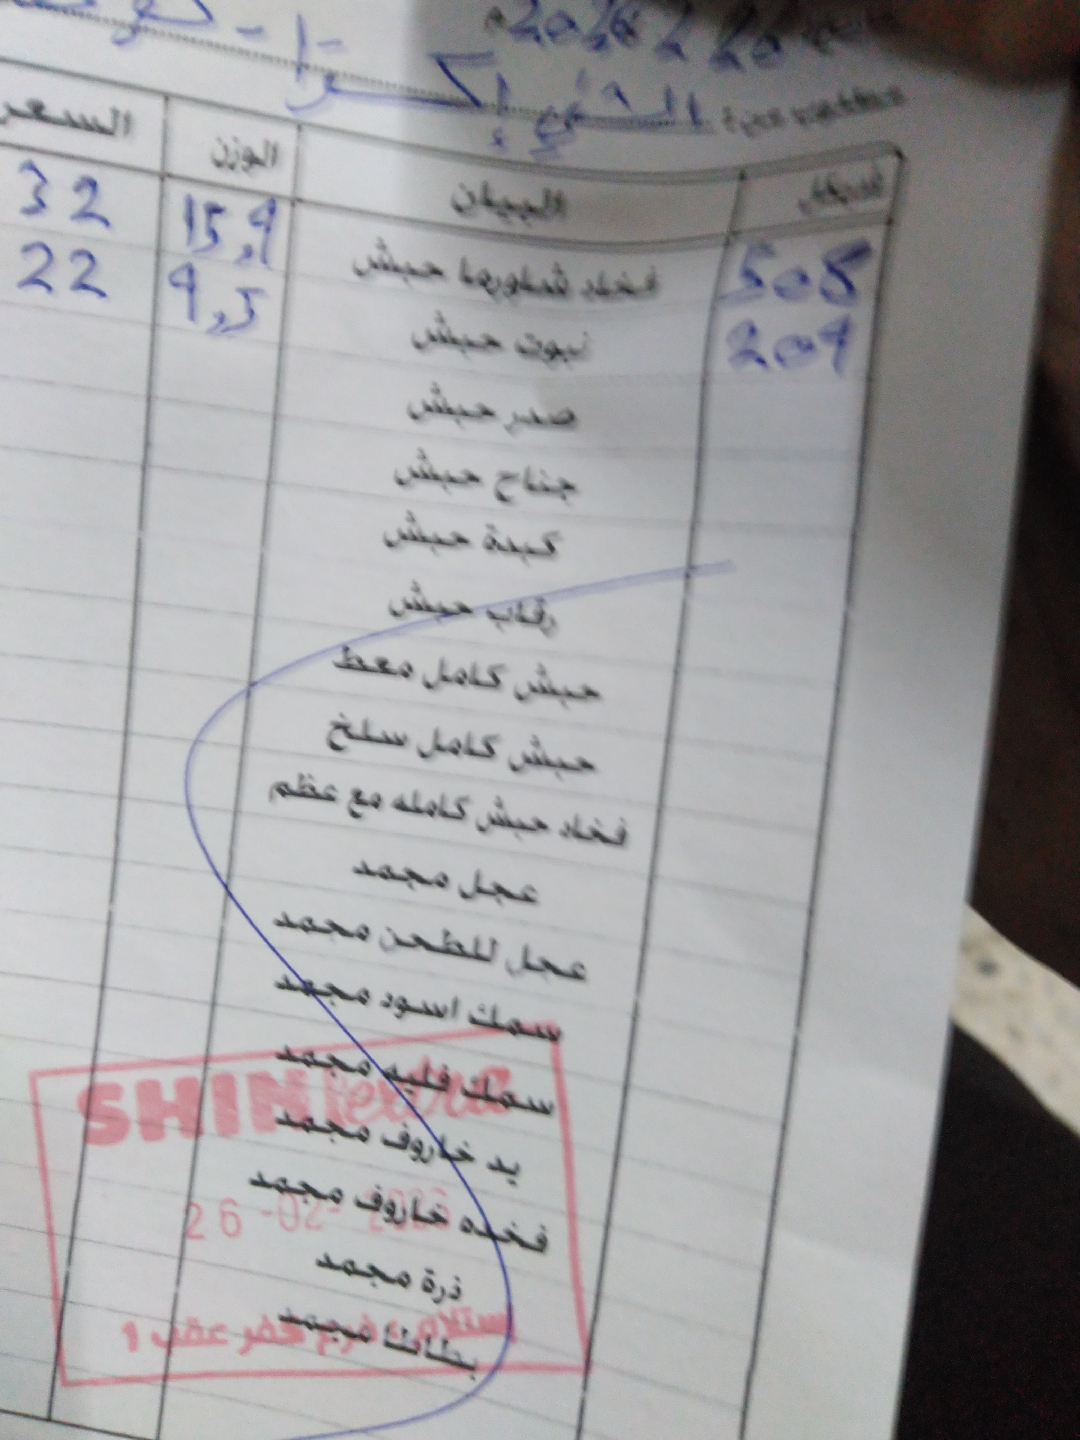 السعر الوزن البيان
508 فخاد شاورما حبش 15,9 32
209 نبوت حبش 9,5 22
صدر حبش
جناح حبش
كبدة حبش
رقاب حبش
حبش كامل معط
حبش كامل سلخ
فخاد حبش كامله مع عظم
عجل مجمد
عجل للطحن مجمد
سمك اسود مجمد
سمك فليه مجمد
يد خاروف مجمد
فخده خاروف مجمد
ذرة مجمد
بطاطا مجمد
SHINI extra
26-02-2026
استلام فرع كفر عقب 1